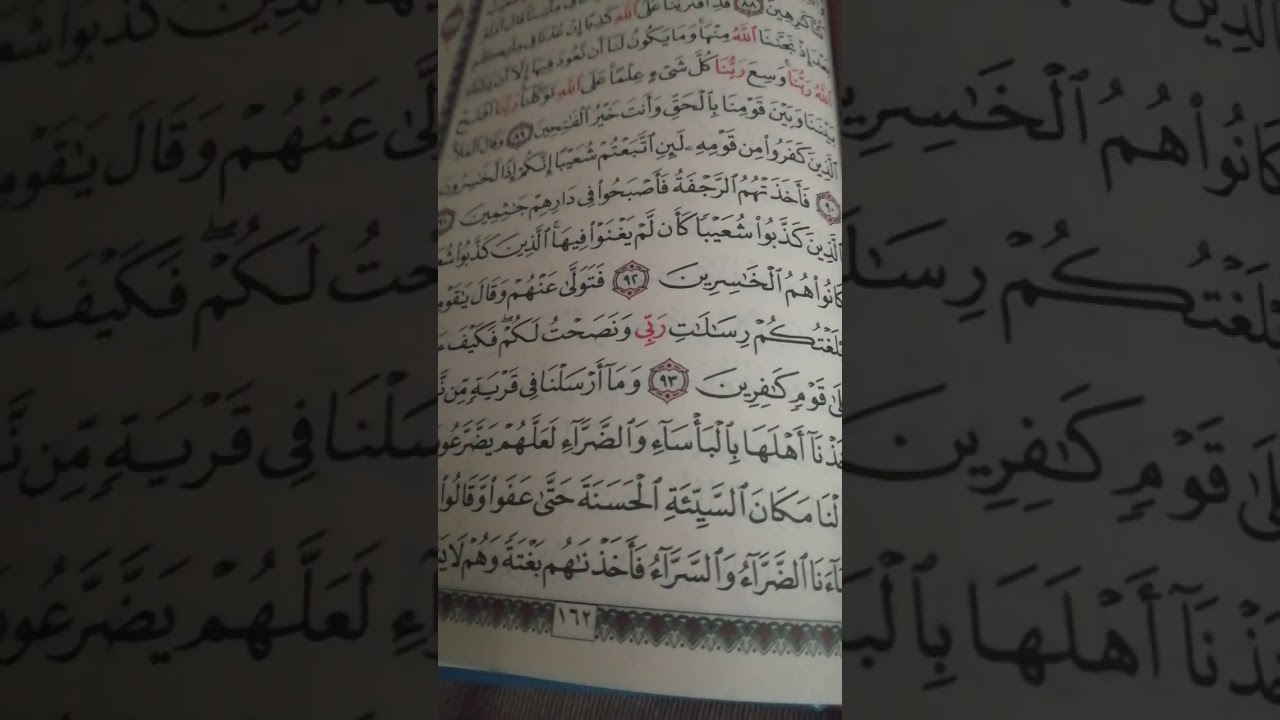 كَٰرِهِينَ ٨٨ قَدِ ٱفْتَرَيْنَا عَلَى ٱللَّهِ كَذِبًا إِنْ عُدْنَا فِى مِلَّتِكُم
بَعْدَ إِذْ نَجَّىٰنَا ٱللَّهُ مِنْهَا وَمَا يَكُونُ لَنَآ أَن نَّعُودَ فِيهَآ إِلَّآ أَن يَشَآءَ
ٱللَّهُ رَبُّنَا وَسِعَ رَبُّنَا كُلَّ شَىْءٍ عِلْمًا عَلَى ٱللَّهِ تَوَكَّلْنَا رَبَّنَا ٱفْتَحْ
بَيْنَنَا وَبَيْنَ قَوْمِنَا بِٱلْحَقِّ وَأَنتَ خَيْرُ ٱلْفَٰتِحِينَ ٨٩ وَقَالَ ٱلْمَلَأُ
ٱلَّذِينَ كَفَرُوا۟ مِن قَوْمِهِۦ لَئِنِ ٱتَّبَعْتُمْ شُعَيْبًا إِنَّكُمْ إِذًا لَّخَٰسِرُونَ
٩٠ فَأَخَذَتْهُمُ ٱلرَّجْفَةُ فَأَصْبَحُوا۟ فِى دَارِهِمْ جَٰثِمِينَ ٩١
ٱلَّذِينَ كَذَّبُوا۟ شُعَيْبًا كَأَن لَّمْ يَغْنَوْا۟ فِيهَا ٱلَّذِينَ كَذَّبُوا۟
كَانُوا۟ هُمُ ٱلْخَٰسِرِينَ ٩٢ فَتَوَلَّىٰ عَنْهُمْ وَقَالَ يَٰقَوْمِ
بْلَغْتُكُمْ رِسَٰلَٰتِ رَبِّى وَنَصَحْتُ لَكُمْ فَكَيْفَ
عَلَىٰ قَوْمٍ كَٰفِرِينَ ٩٣ وَمَآ أَرْسَلْنَا فِى قَرْيَةٍ مِّن
خَذْنَآ أَهْلَهَا بِٱلْبَأْسَآءِ وَٱلضَّرَّآءِ لَعَلَّهُمْ يَضَّرَّعُونَ
لْنَا مَكَانَ ٱلسَّيِّئَةِ ٱلْحَسَنَةَ حَتَّىٰ عَفَوا۟ وَّقَالُوا۟
ءَابَآءَنَا ٱلضَّرَّآءُ وَٱلسَّرَّآءُ فَأَخَذْنَٰهُم بَغْتَةً وَهُمْ لَا
١٦٢